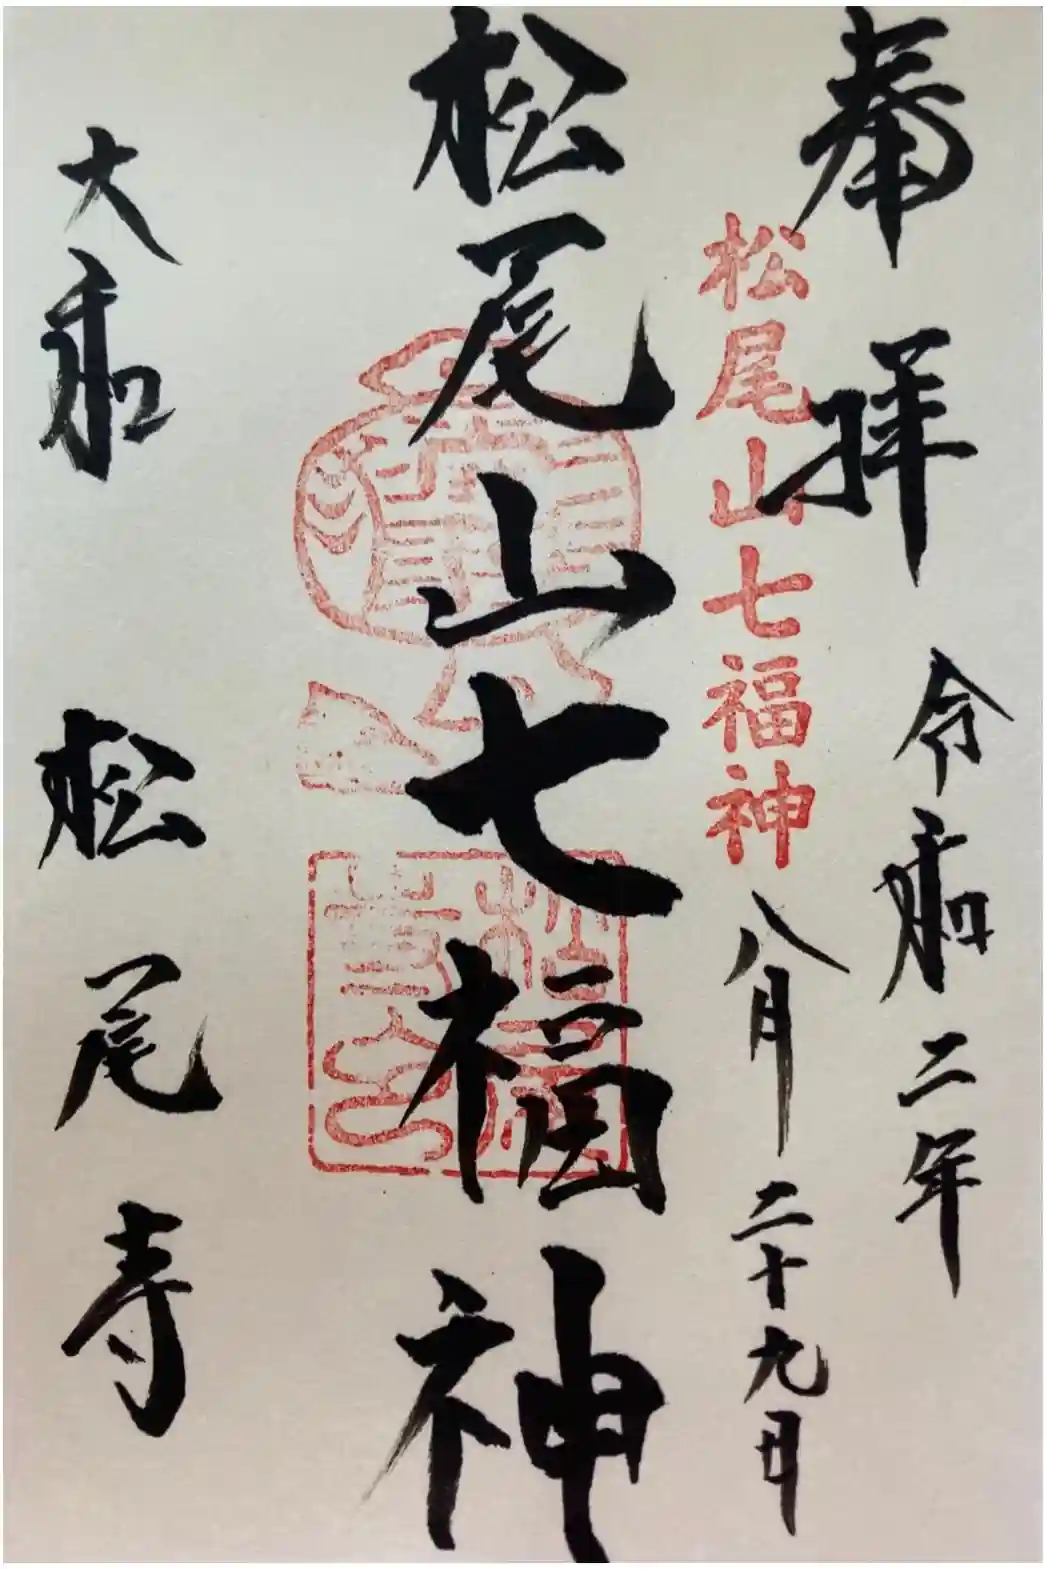 奉拝
令和二年
八月二十九日
松尾山七福神
松尾山七福神
大和
松尾寺